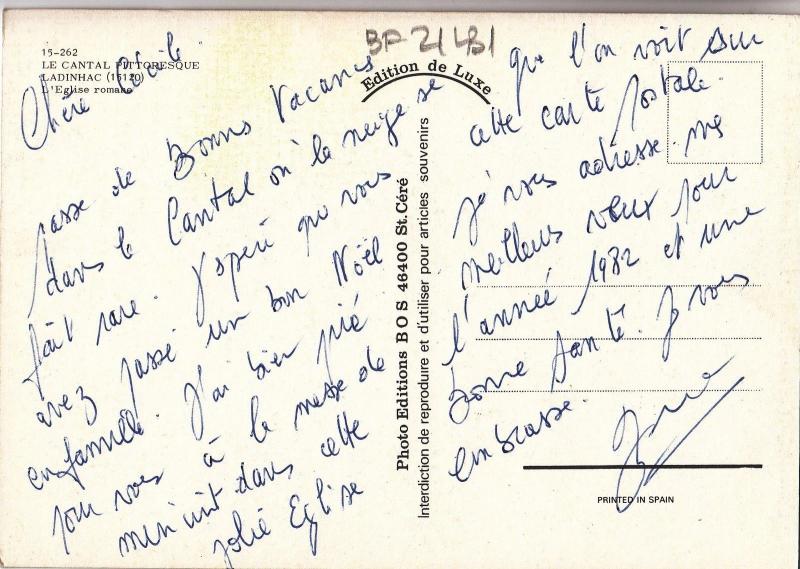 15-262
LE CANTAL PITTORESQUE
LADINHAC (15120)
L'Eglise romane
BF 21 LB1
Edition de Luxe
Photo Editions BOS 46400 St. Céré
Interdiction de reproduire et d'utiliser pour articles souvenirs
Chère
passe de Bonnes Vacances
dans le Cantal où la neige se
fait rare. J'espère que vous
avez passé un bon Noël
en famille. J'ai bien prié
pour vous à la messe de
minuit dans cette
jolie Eglise
que l'on voit sur
cette carte postale.
Je vous adresse mes
meilleurs vœux pour
l'année 1982 et une
bonne santé. Je vous
embrasse.
PRINTED IN SPAIN